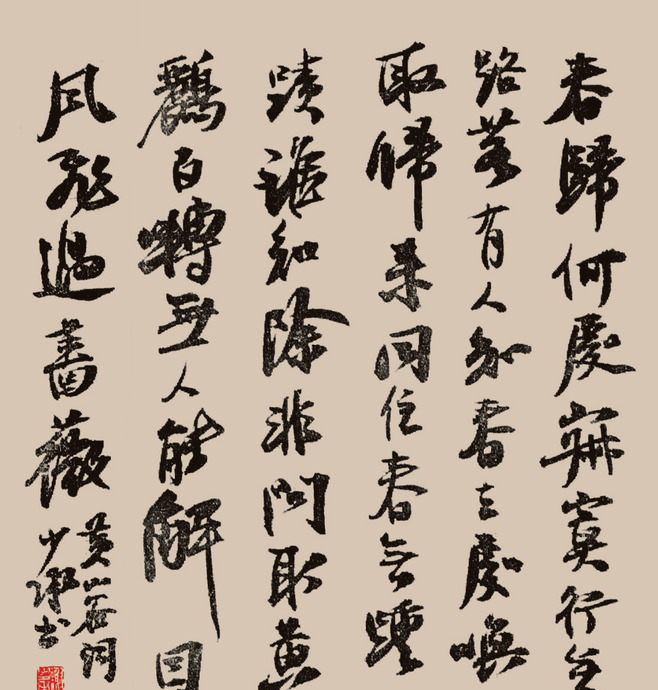 春歸何處寂寞行無
路若有人知春去處喚
取歸来同住春無蹤
蹟誰知除非問取黄
鸝百囀無人能解因
風飛過薔薇
黄山谷詞
少书